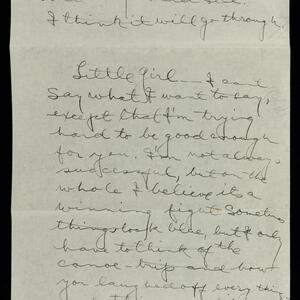 I think it will go through.
Little Girl — I can't
say what I want to say,
except that I'm trying
hard to be good enough
for you. I'm not always
successful, but on the
whole I believe its a
winning fight. Sometimes
things look blue, but I only
have to think of the
canoe-trip and how
you laughed off everything